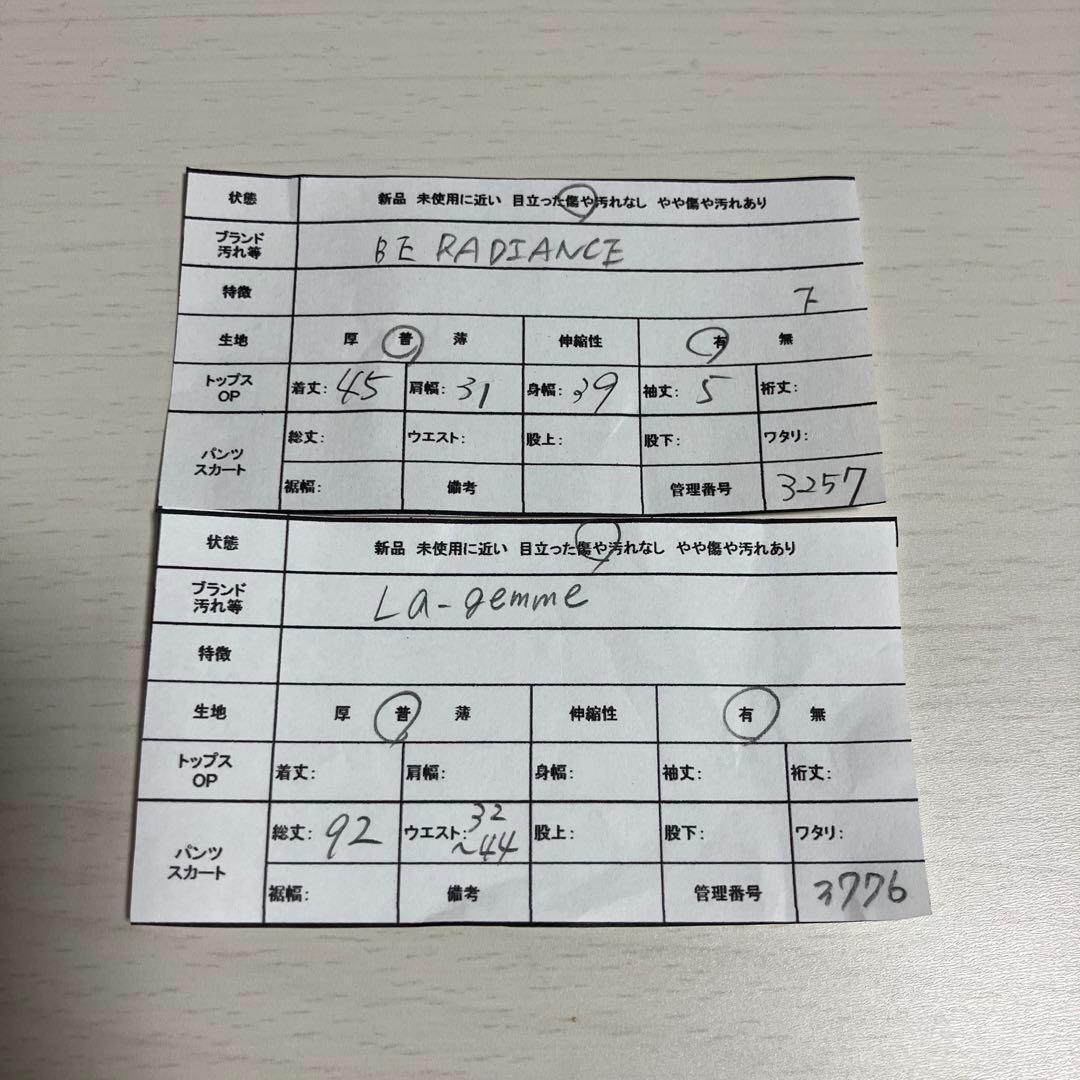 状態 新品 未使用に近い 目立った傷や汚れなし やや傷や汚れあり
ブランド 汚れ等 BE RADIANCE
特徴 フ
生地 厚 普 薄 伸縮性 有 無
トップス OP 着丈: 45 肩幅: 31 身幅: 39 袖丈: 5 裄丈:
パンツ スカート 総丈: ウエスト: 股上: 股下: ワタリ:
裾幅: 備考 管理番号 3257
状態 新品 未使用に近い 目立った傷や汚れなし やや傷や汚れあり
ブランド 汚れ等 La-gemme
特徴
生地 厚 普 薄 伸縮性 有 無
トップス OP 着丈: 肩幅: 身幅: 袖丈: 裄丈:
パンツ スカート 総丈: 92 ウエスト: 32 ~44 股上: 股下: ワタリ:
裾幅: 備考 管理番号 3776